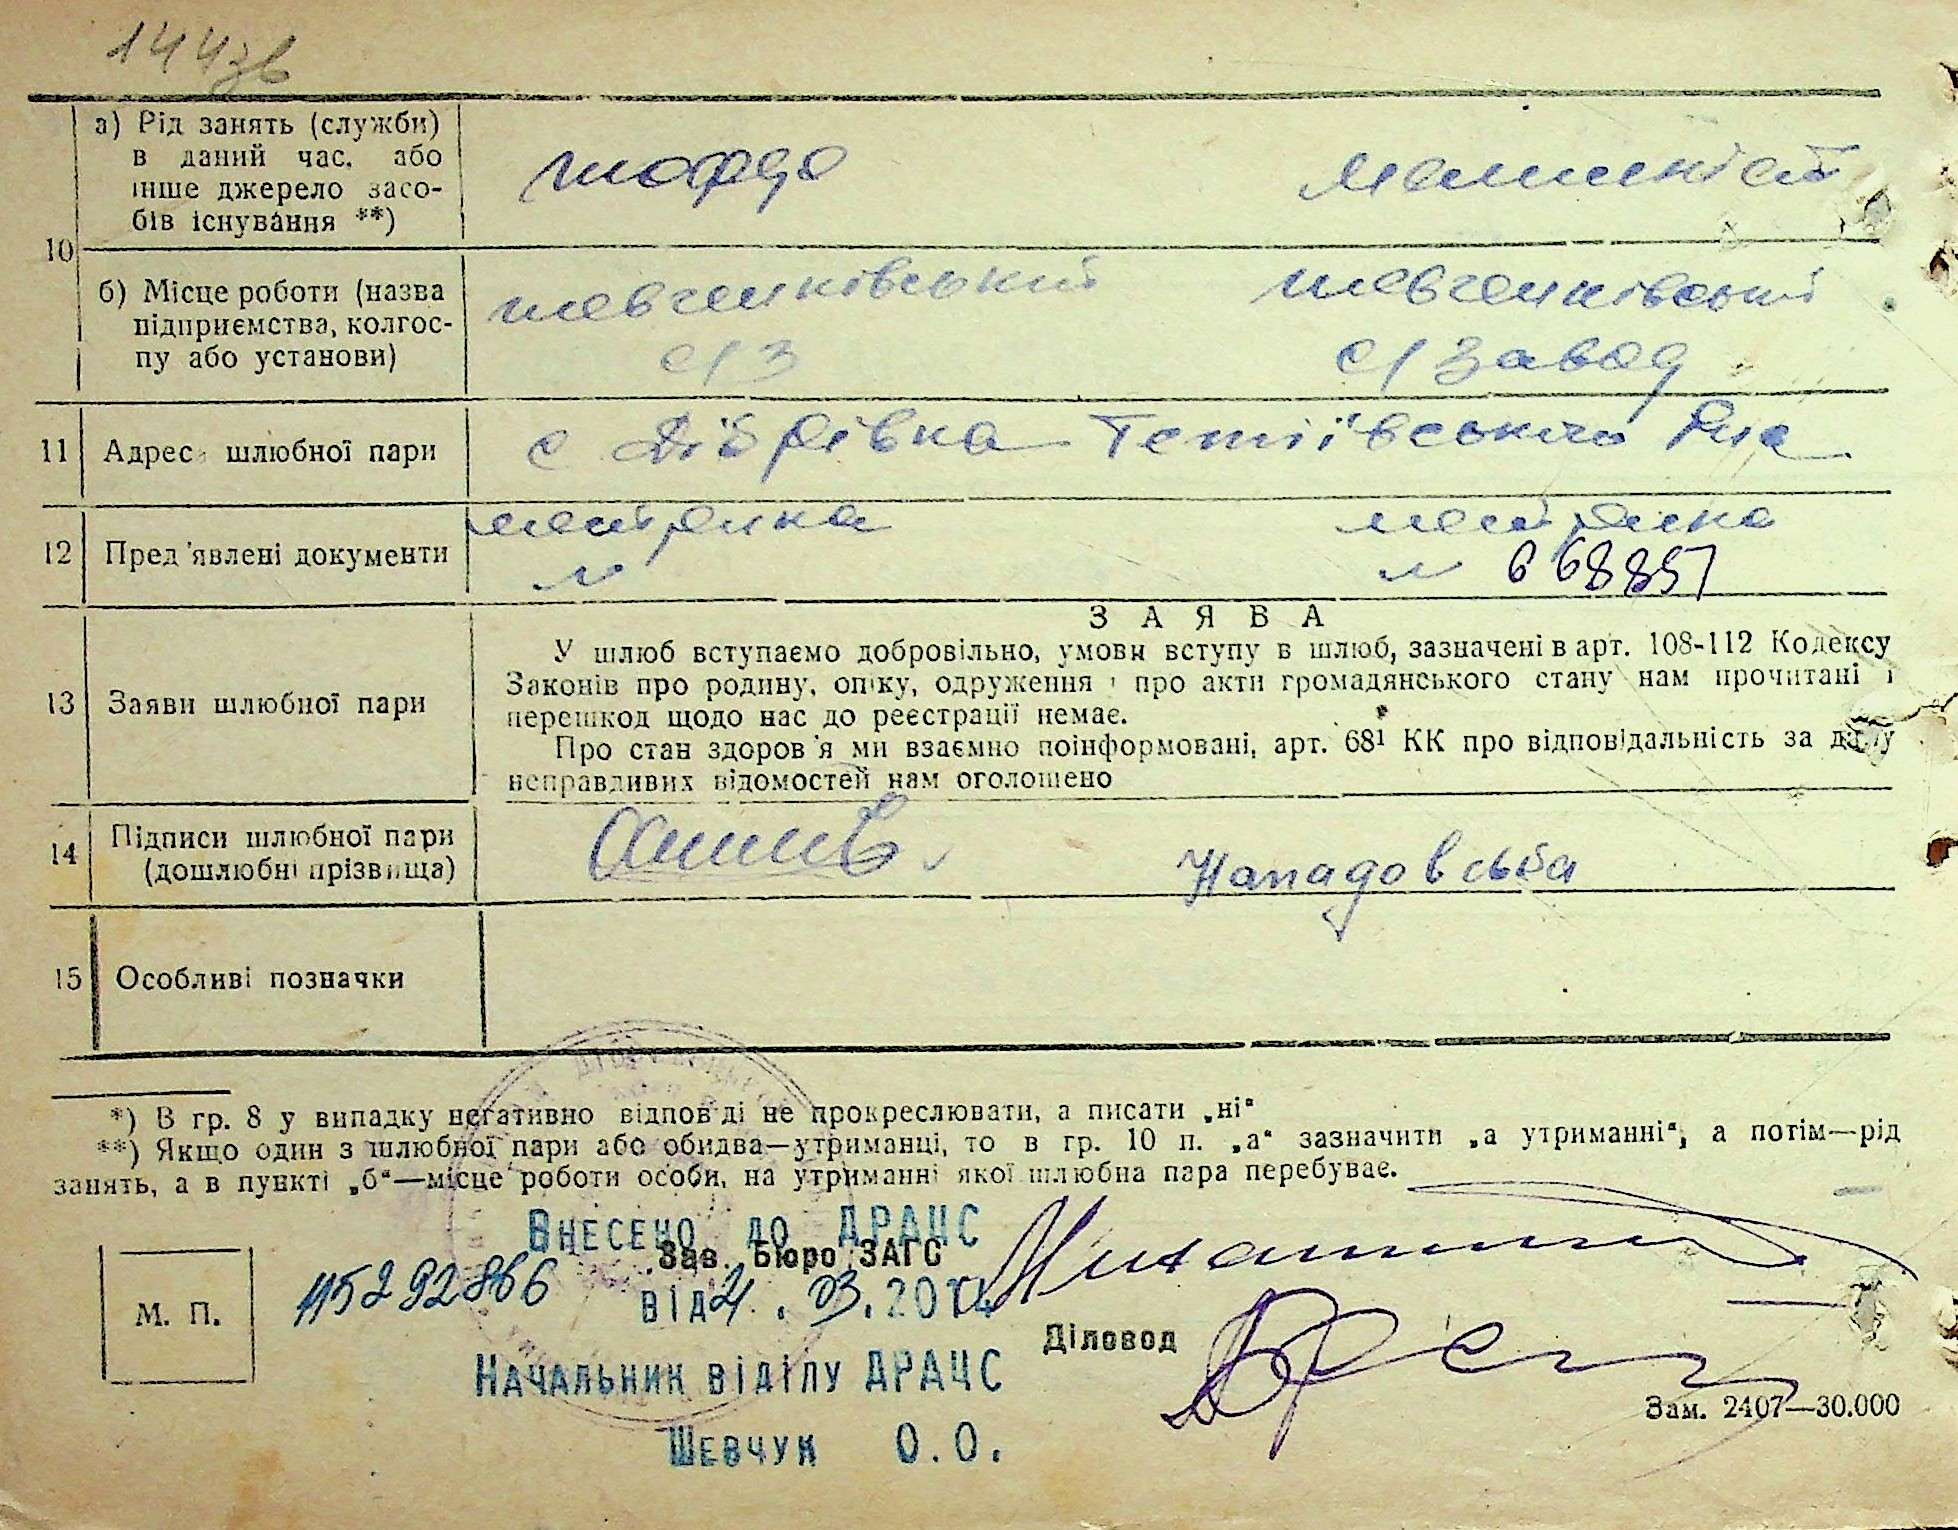 144зв
а) Рід занять (служби)
в даний час, або
інше джерело засо-
бів існування **)
шофер
машиніст
10
б) Місце роботи (назва
підприємства, колгос-
пу або установи)
шевченківський
с/з
шевченківський
с/завод
11 Адреса шлюбної пари
с Дібрівка Тетіївського Р-на
12 Пред'явлені документи
метрика
№
метрика
№ 668857
13 Заяви шлюбної пари
ЗАЯВА
У шлюб вступаємо добровільно, умови вступу в шлюб, зазначені в арт. 108-112 Кодексу
Законів про родину, опіку, одруження і про акти громадянського стану нам прочитані і
перешкод щодо нас до реєстрації немає.
Про стан здоров'я ми взаємно поінформовані, арт. 68¹ КК про відповідальність за дачу
неправдивих відомостей нам оголошено
14 Підписи шлюбної пари
(дошлюбні прізвища)
Нападовська
15 Особливі позначки
*) В гр. 8 у випадку негативно відповіді не прокреслювати, а писати „ні“
**) Якщо один з шлюбної пари або обидва—утриманці, то в гр. 10 п. „а“ зазначити „а утриманні“, а потім—рід
занять, а в пункті „б“—місце роботи особи, на утриманні якої шлюбна пара перебуває.
Внесено до ДРАЦС
Зав. Бюро ЗАГС
115292866 від 4.03.2014
М. П.
Діловод
Начальник відділу ДРАЦС
Зам. 2407—30.000
Шевчук О.О.